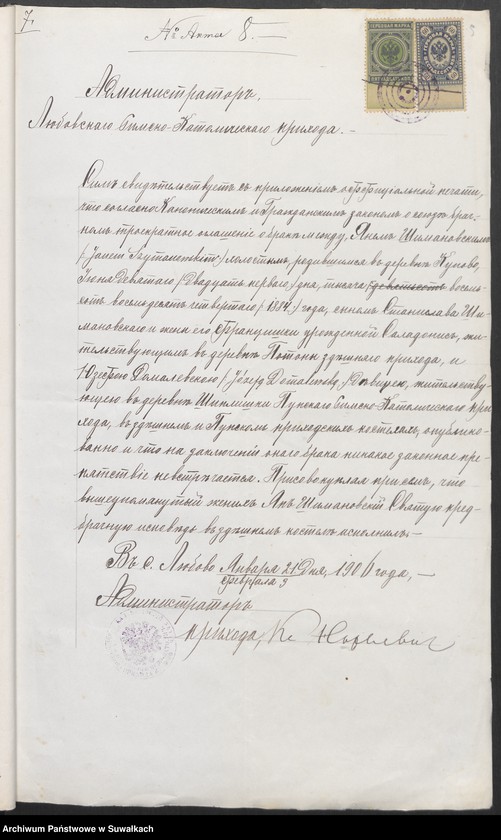 7.
№ Акта 8. —
Администраторъ,
Любовскаго Римско-Католическаго прихода. —
Симъ свидѣтельствуетъ съ приложеніемъ оффиціальной печати,
что согласно Каноническимъ и Гражданскимъ законамъ о союзѣ брач-
номъ троекратное оглашеніе о бракѣ между, Яномъ Шимановскимъ
(Janem Szymanowskim) холостымъ, родившимся въ деревнѣ
Іюня Девятаго (Двадцать перваго) дня, тысяча восемь-
сотъ восемьдесятъ четвертаго (1884) года, сыномъ Станислава Ши-
мановскаго и жены его, Францишки урожденной, жи-
тельствующимъ въ деревнѣ здѣшняго прихода, и
Юзефою Домалевскою, дѣвицею, жительству-
ющею въ деревнѣ Шиплишки Пунскаго Римско-Католическаго при-
хода, въ здѣшнемъ и Пунскомъ приходскихъ костелахъ, опублико-
вано и что на заключеніи онаго брака никакое законное пре-
пятствіе не встрѣчается. Присовокупляя при семъ, что
вышеупомянутый женихъ Янъ Шимановскій Святую пред-
брачную исповѣдь въ здѣшнемъ костелѣ исполнилъ. —
Въ с. Любово Января 21 дня, 1906 года, —
Февраля 3
Администраторъ
прихода, Кс.
Archiwum Państwowe w Suwałkach